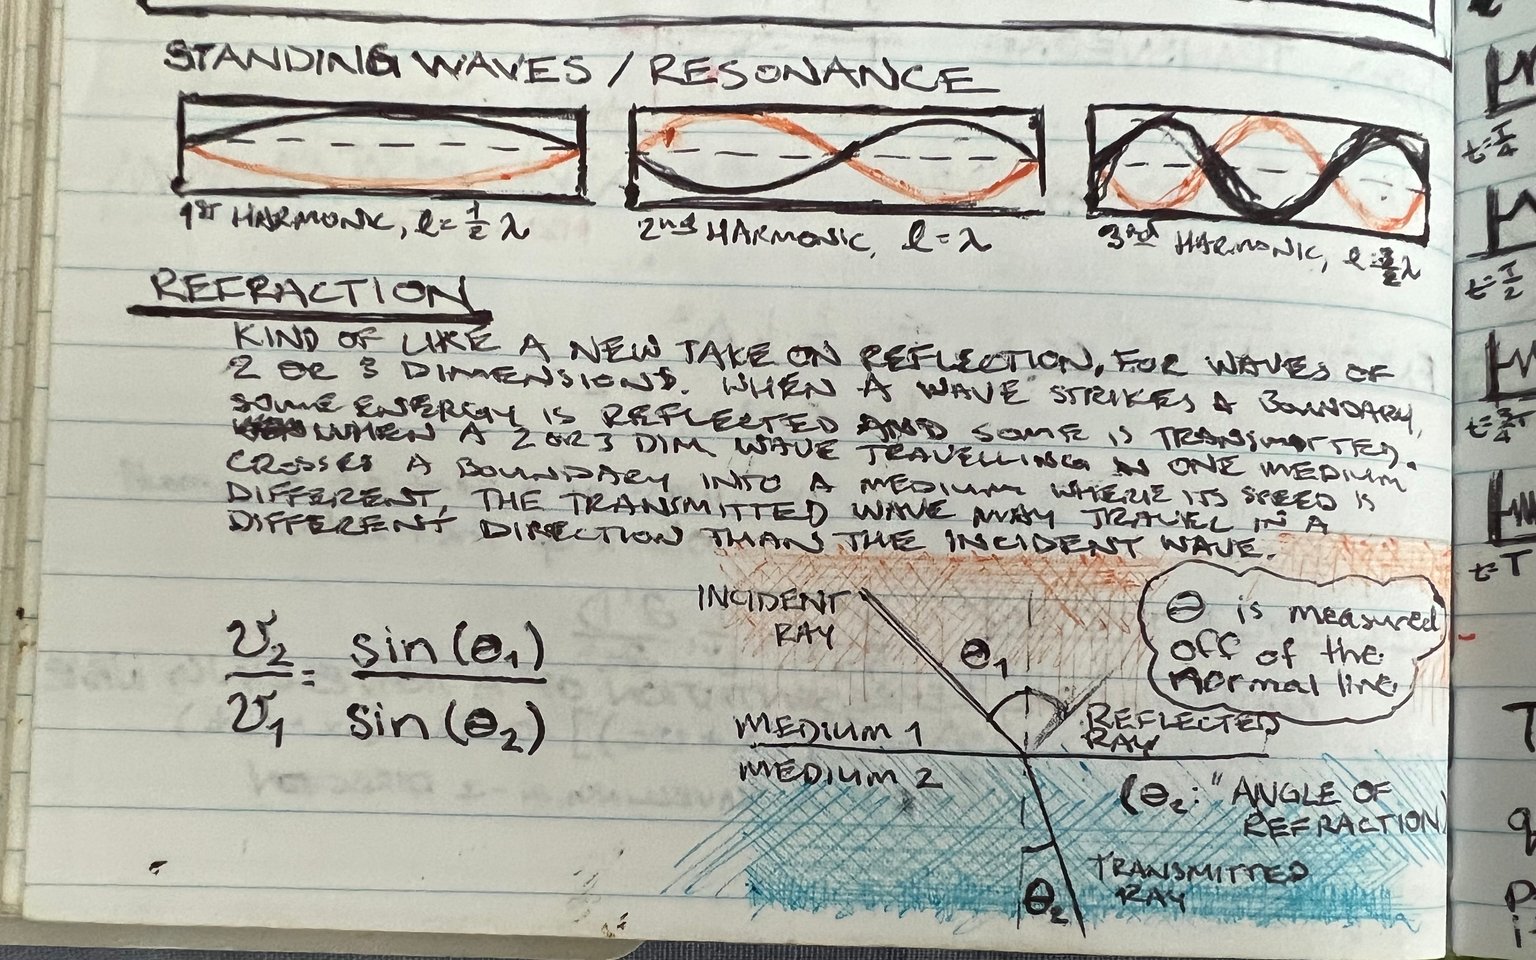 STANDING WAVES / RESONANCE
1ST HARMONIC, l = 1/2 λ
2nd HARMONIC, l = λ
3rd HARMONIC, l = 3/2 λ
REFRACTION
KIND OF LIKE A NEW TAKE ON REFLECTION, FOR WAVES OF
2 OR 3 DIMENSIONS. WHEN A WAVE STRIKES A BOUNDARY,
SOME ENERGY IS REFLECTED AND SOME IS TRANSMITTED.
WHEN A 2 OR 3 DIM WAVE TRAVELLING IN ONE MEDIUM
CROSSES A BOUNDARY INTO A MEDIUM WHERE ITS SPEED IS
DIFFERENT, THE TRANSMITTED WAVE MAY TRAVEL IN A
DIFFERENT DIRECTION THAN THE INCIDENT WAVE.
v2/v1 = sin(θ1)/sin(θ2)
INCIDENT
RAY
θ1
θ is measured
off of the
normal line
REFLECTED
RAY
MEDIUM 1
MEDIUM 2
(θ2: "ANGLE OF
REFRACTION)
TRANSMITTED
RAY
θ2
t=T/4
t=T/2
t=3T/4
t=T